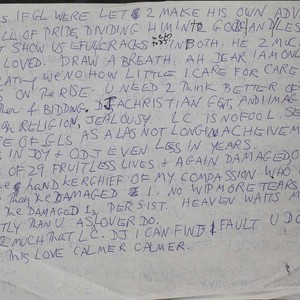 S IF GL WERE LET 2 MAKE HIS OWN ADV
LL OF PRIDE, DIVIDING HIM INTO 2 GODS AND LES
T SHOW US CRACKS IN BOTH. HE 2 MUC
LOVED. DRAW A BREATH. AH DEAR I AM ON
WE NO HOW LITTLE I CARE FOR CARE
ON THE RISE. U NEED 2 THINK BETTER OF
OF BIDDING, DJ A CHRISTIAN EGT, AND IMAG
RELIGION, JEALOUSY. LC IS NO FOOL. SE
TE OF GLS AS ALAS NOT LONG IN ACHEIVEM
S IN JOY + ODJ EVEN LESS IN YEARS.
S OF 29 FRUITLESS LIVES + AGAIN DAMAGED, O
HANDKERCHIEF OF MY COMPASSION WHO
THAN THE DAMAGED 1. NO WIP MORE TEARS
THE DAMAGED 1, PERSIST. HEAVEN WAITS M
TLY THAN U AS LOVER DO.
2 MUCH THAT LC. DJ I CAN FIND 1 FAULT U DO
THIS LOVE CALMER CALMER.